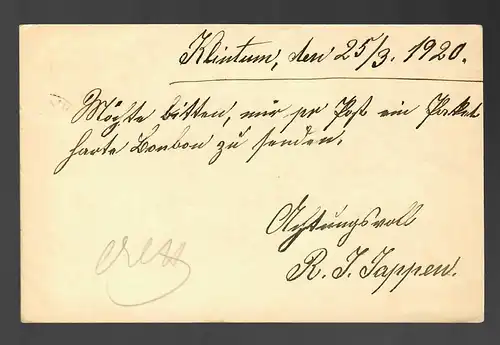 Klintum, den 25/3. 1920.
Möchte bitten, mir pr Post ein Packet
harte Bonbon zu senden.
Achtungsvoll
R. J. Jappen.